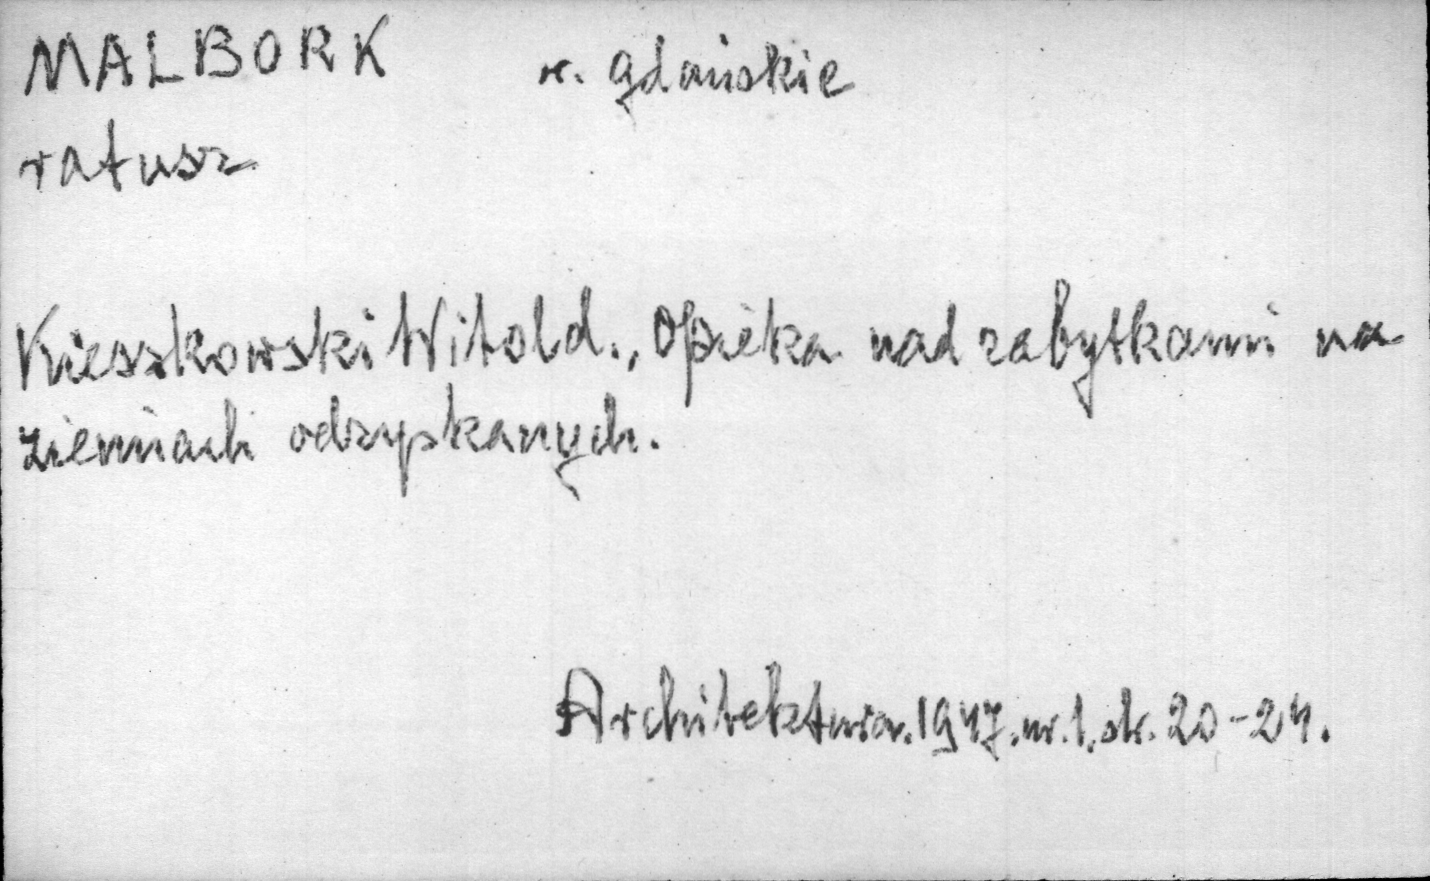 MALBORK w. gdańskie
ratusz
Kieszkowski Witold., Opieka nad zabytkami na
ziemiach odzyskanych.
Architektura. 1947. nr. 1, str. 20-24.